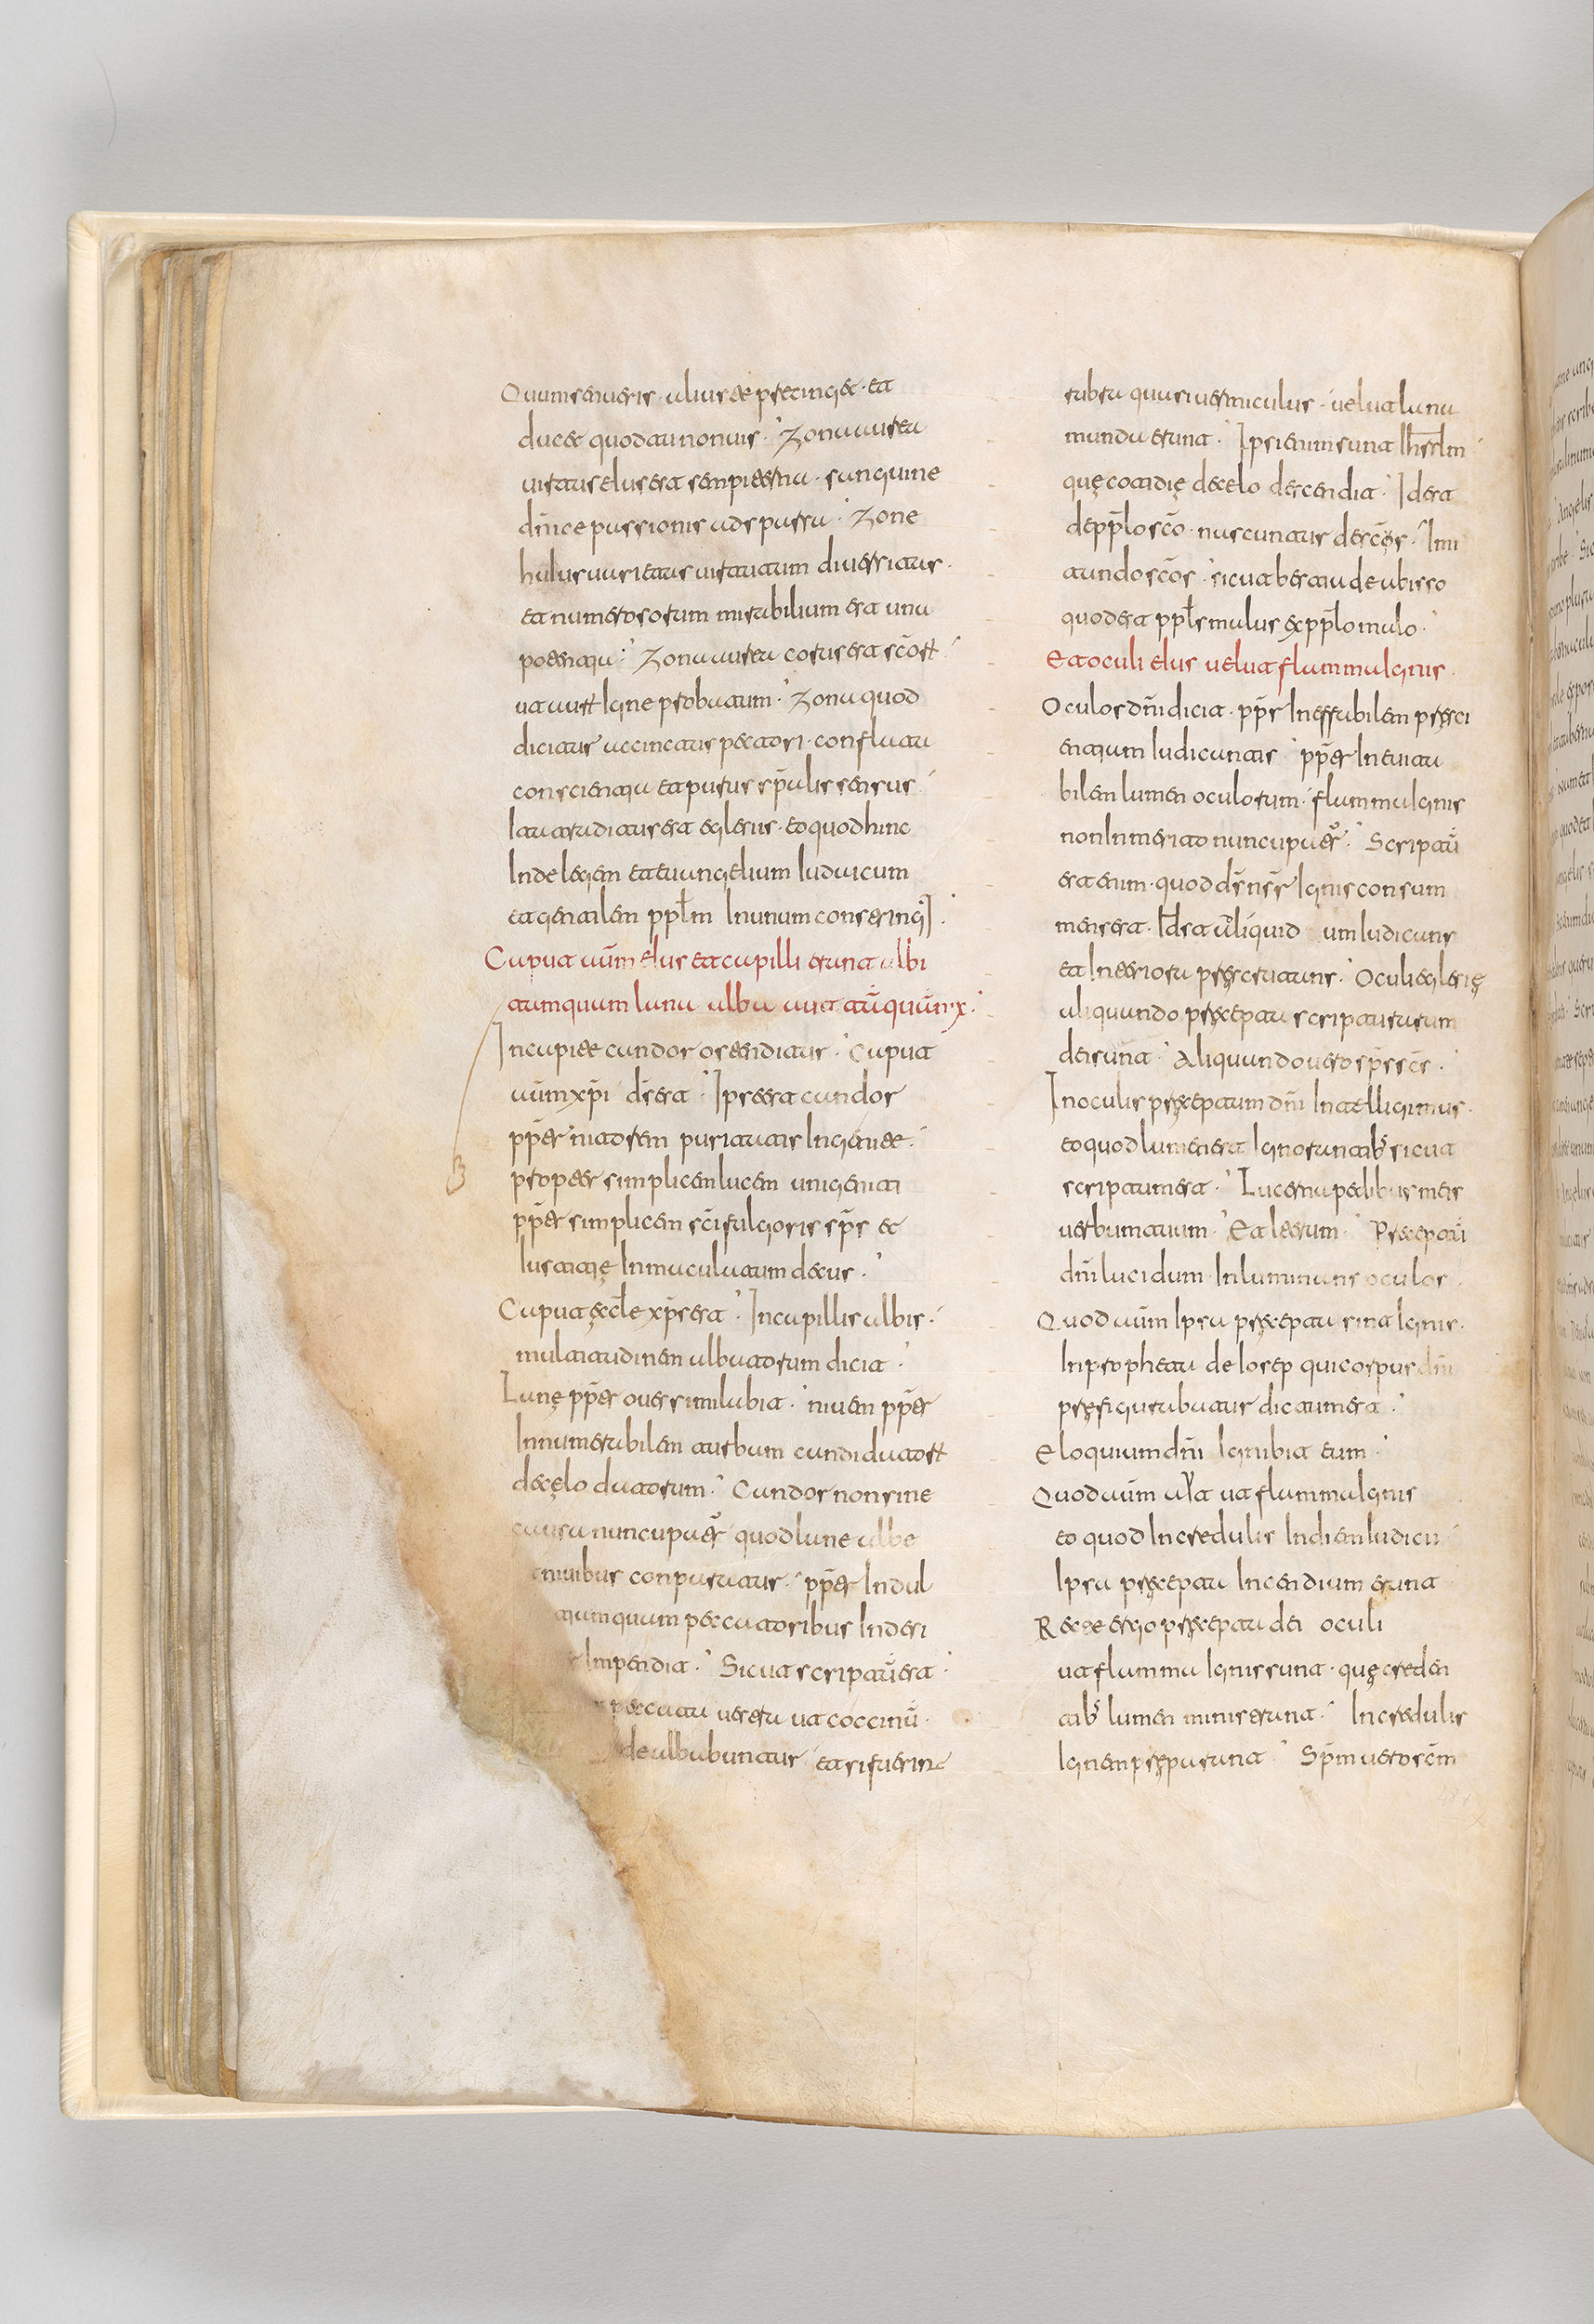 Quum senueris· alius te precinget· et
ducet quo tu non uis· Zona aurea
uirtutis eius est senpiterna· sanguine
dn̄ice passionis adspersa· Zone
huius uarietas uirtutum diuersitas·
et numerosorum mirabilium est una
potentia· Zona aurea corus est sc̄orum
ut aurum igne probatum· Zona quod
dicitur accinctus pectori· conflata
conscientia et purus sp̄alis sensus·
est eglesie· eo quod hinc
Inde legem et euangelium iudaicum
et gentilem pplm In unum constringit·
Caput aūm eius et capilli erant albi
tamquam lana alba aut tāquā nix·
In capite candor ostenditur· Caput
aūm xp̄i ds̄ est· Ipse est candor
pp̄ter nitorem puritatis Ingenite·
propter simplicem lucem unigeniti
pp̄ter simplicem sc̄i fulgoris sp̄s et
Iustitię Inmaculatum decus·
Caput ęcl̄e xp̄s est· In capillis albis·
multitudinem albatorum dicit·
Lanę pp̄ter oues similabit· niuem pp̄ter
Innumerabilem turbam candidatorum
de cęlo datorum· Candor non sine
causa nuncupatur quod lane albe
niuibus conparatur· pp̄ter Indul
tiam quam peccatoribus
Inpendit· Sicut scriptū est·
peccata uestra ut coccinū·
dealbabuntur et si fuerint
rubra quasi uermiculus· uelut lana
munda erunt· Ipsi enim sunt Ihrslm
quę cotidię de celo descendit· Id est
de pplo sc̄o· nascuntur de sc̄is· Imi
tando sc̄os· sicut e contra de abisso
quod est ppls malus ex pplo malo·
Et oculi eius uelut flamma Ignis·
Oculos dn̄i dicit· pp̄r Ineffabilem pręsci
entiam Iudicantis pp̄ter Ineuita
bilem lumen oculorum· flamma Ignis
non Inmerito nuncupatur· Scriptū
est enim· quod ds̄ nsr̄ Ignis consum
mens est· aliquid Iudicans
et Interiora pręscrutans· Oculi eglesię
aliquando pręcepta scripturarum
dei sunt· Aliquando uero sp̄s sc̄s·
In oculis pręceptum dn̄i Intelligimus·
eo quod lumen est Ignorantibus sicut
scriptum est· Lucerna pedibus meis
uerbum tuum· Et Iterum· Preceptū
dn̄i lucidum Inluminans oculos·
Quod aūm Ipsa pręcepta sint Ignis·
In propheta de Iosep qui corpus dn̄i
pręfigurabatur dictum est·
Eloquium dn̄i Ignibit eum·
Quod aūm ut flamma Ignis
eo quod Incredulis In diem Iudicii
Ipsa pręcepta Incendium erunt
Recte ergo pręcepta dei oculi
ut flamma Ignis sunt· quę creden
tibs lumen ministrant· Incredulis
Ignem pręparant Sp̄m uero sc̄m